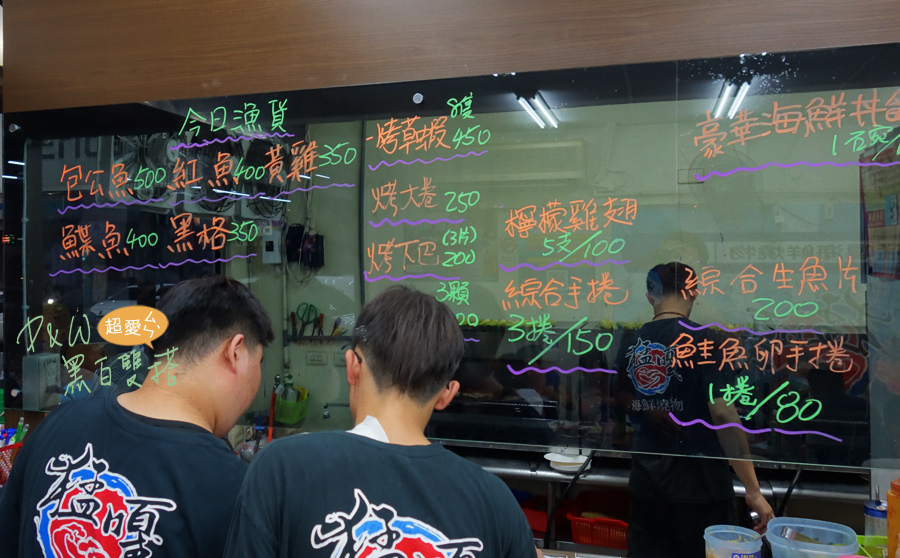 今日漁貨
包公魚500 紅魚400 黃雞350
鰈魚400 黑格350
8隻
烤草蝦450
烤大卷 250
烤下巴 (3片) 200
3顆
檸檬雞翅
5支/100
綜合手捲
3捲/150
豪華海鮮丼飯
綜合生魚片
200
鮭魚卵手捲
1捲/80
P&W
超愛ㄙㄟ
黑白雙搭
猛
猛